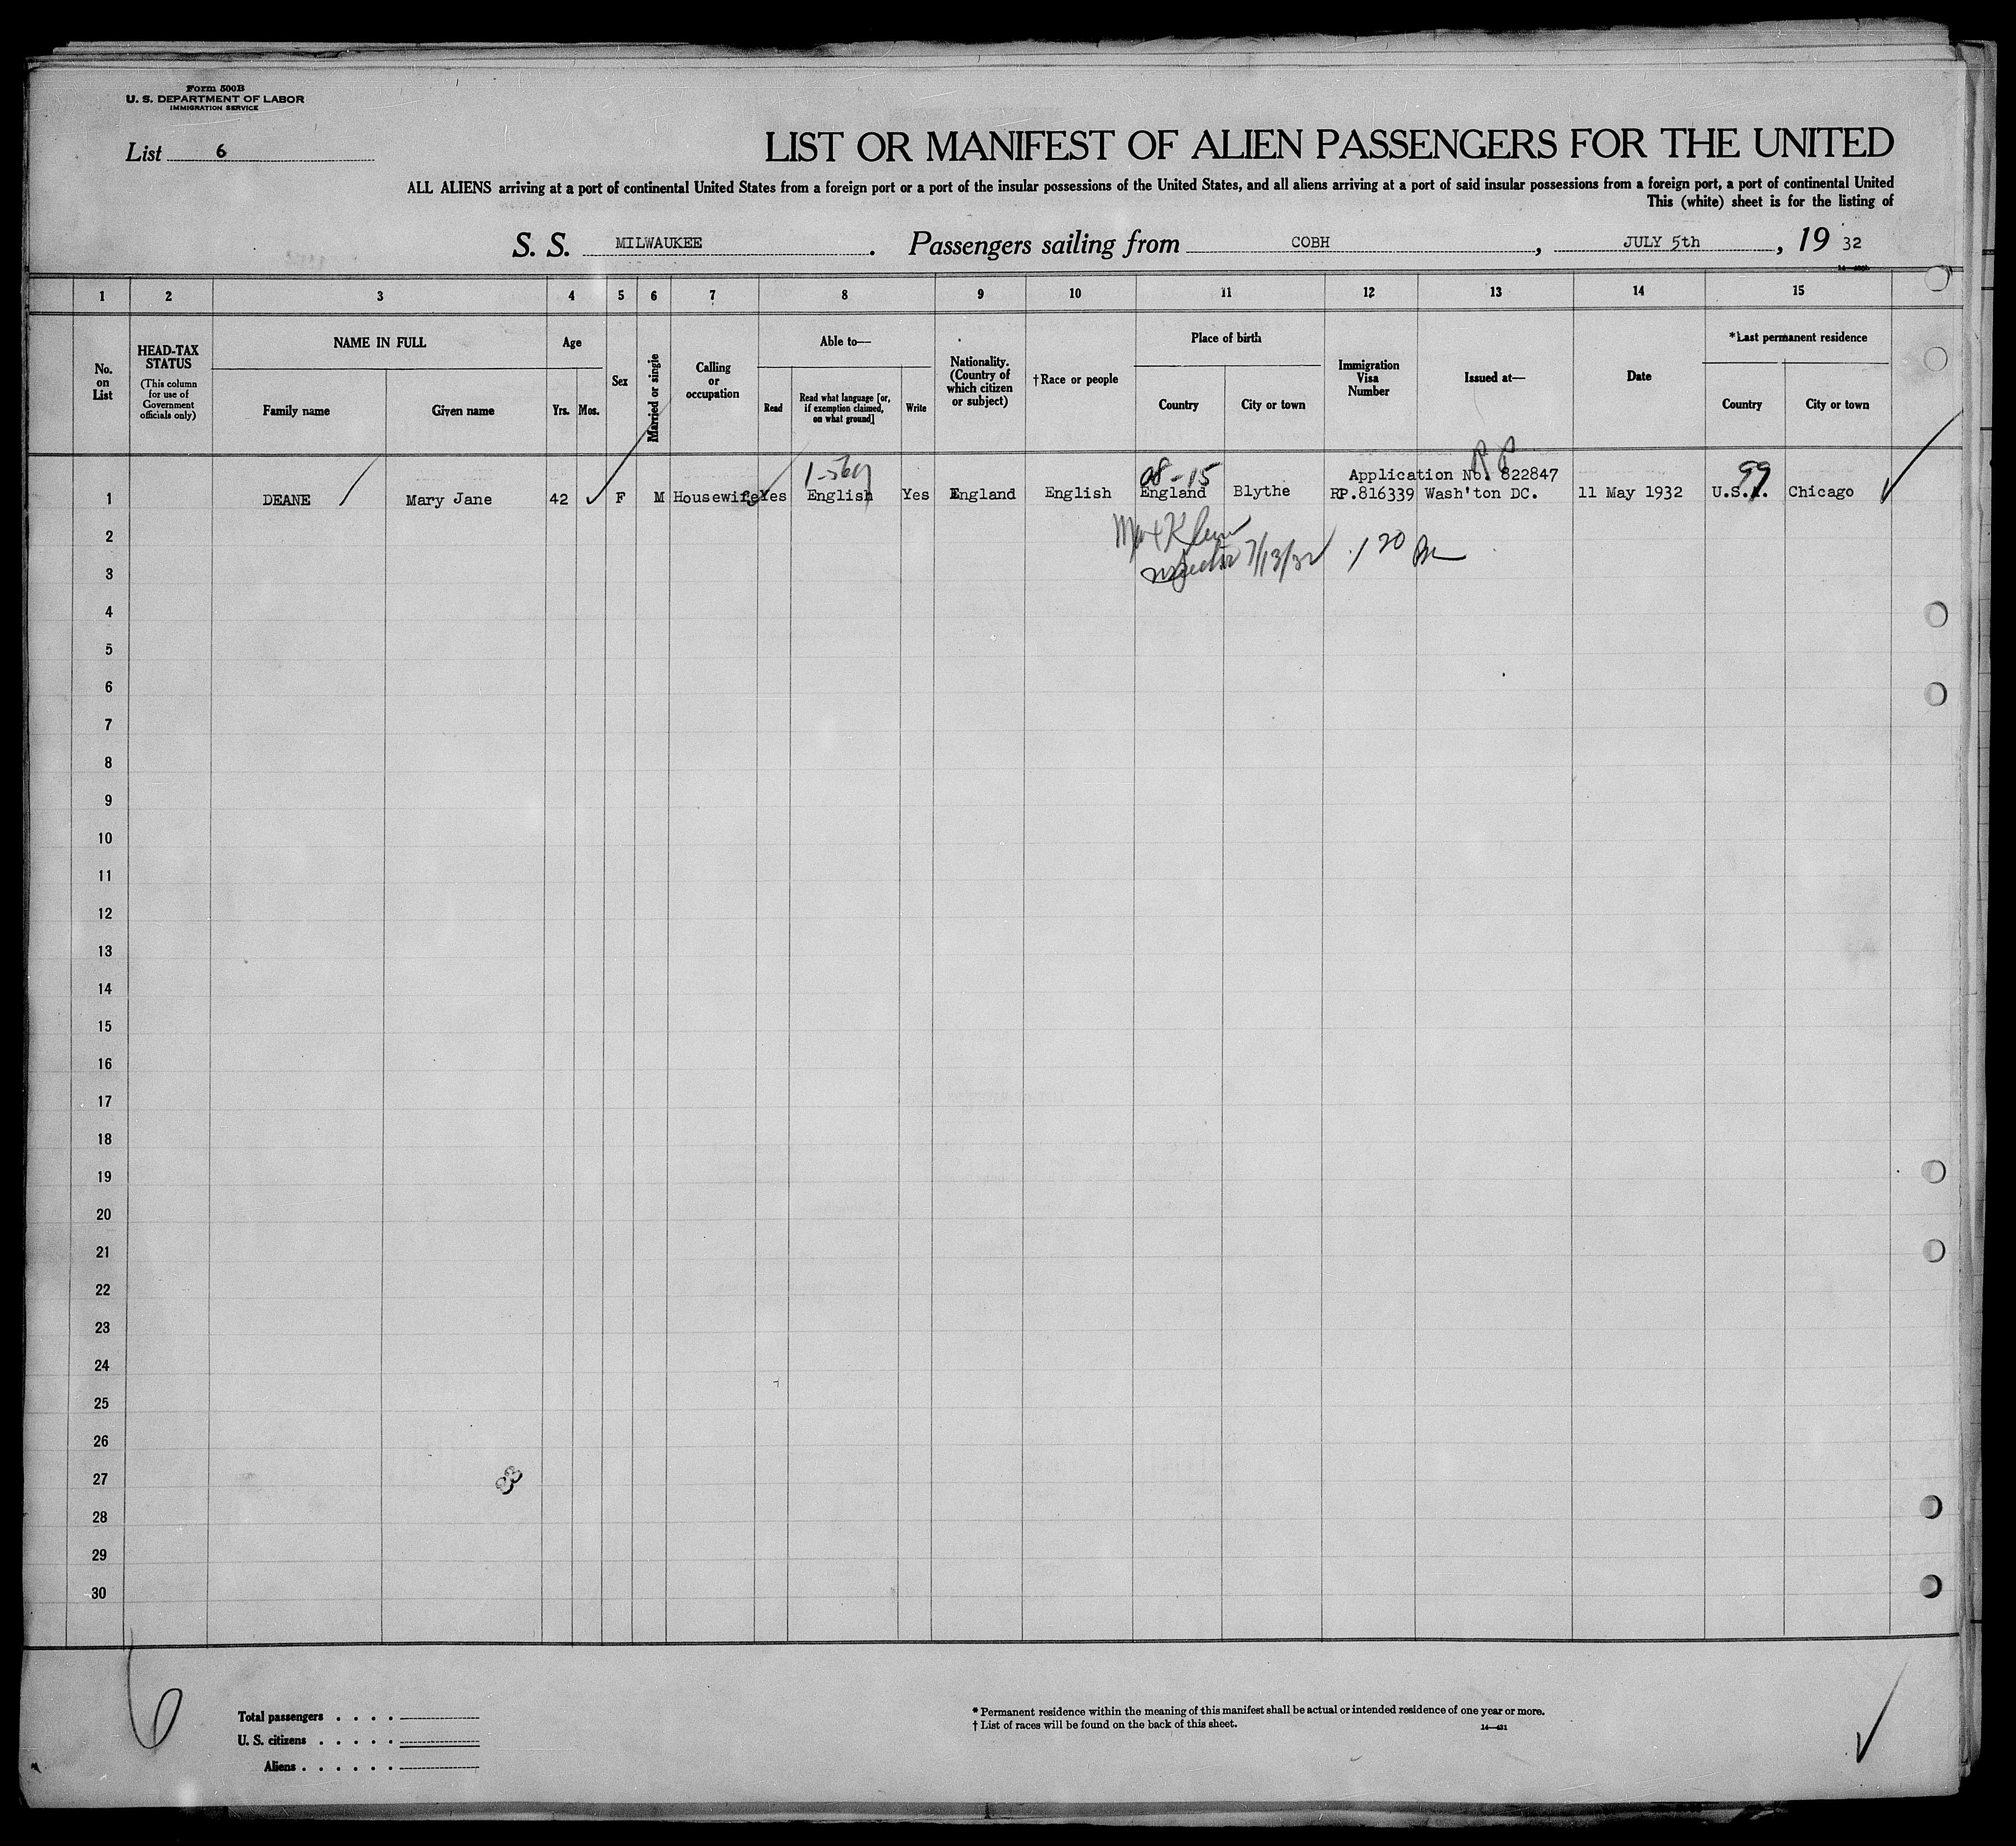 Form 500B
U. S. DEPARTMENT OF LABOR
IMMIGRATION SERVICE
List 6
LIST OR MANIFEST OF ALIEN PASSENGERS FOR THE UNITED
ALL ALIENS arriving at a port of continental United States from a foreign port or a port of the insular possessions of the United States, and all aliens arriving at a port of said insular possessions from a foreign port, a port of continental United
This (white) sheet is for the listing of
S. S. MILWAUKEE. Passengers sailing from COBH, JULY 5th, 19 32
1 2 3 4 5 6 7 8 9 10 11 12 13 14 15
No. on List
HEAD-TAX STATUS
(This column for use of Government officials only)
NAME IN FULL
Family name
Given name
Age
Yrs. Mos.
Sex
Married or single
Calling or occupation
Able to—
Read
Read what language [or, if exemption claimed, on what ground]
Write
Nationality. (Country of which citizen or subject)
†Race or people
Place of birth
Country
City or town
Immigration Visa Number
Issued at—
Date
*Last permanent residence
Country
City or town
08-15
R P
99
Application No. 822847
1 DEANE Mary Jane 42 F M Housewife Yes English Yes England English England Blythe RP.816339 Wash'ton DC. 11 May 1932 U.S.A. Chicago
2
Max Klein
3
Inspector 7/13/32 1 20 Pm
4
5
6
7
8
9
10
11
12
13
14
15
16
17
18
19
20
21
22
23
24
25
26
27
28
29
30
6
Total passengers . . . .
U. S. citizens . . . . .
Aliens . . . . . .
* Permanent residence within the meaning of this manifest shall be actual or intended residence of one year or more.
† List of races will be found on the back of this sheet.
14—431